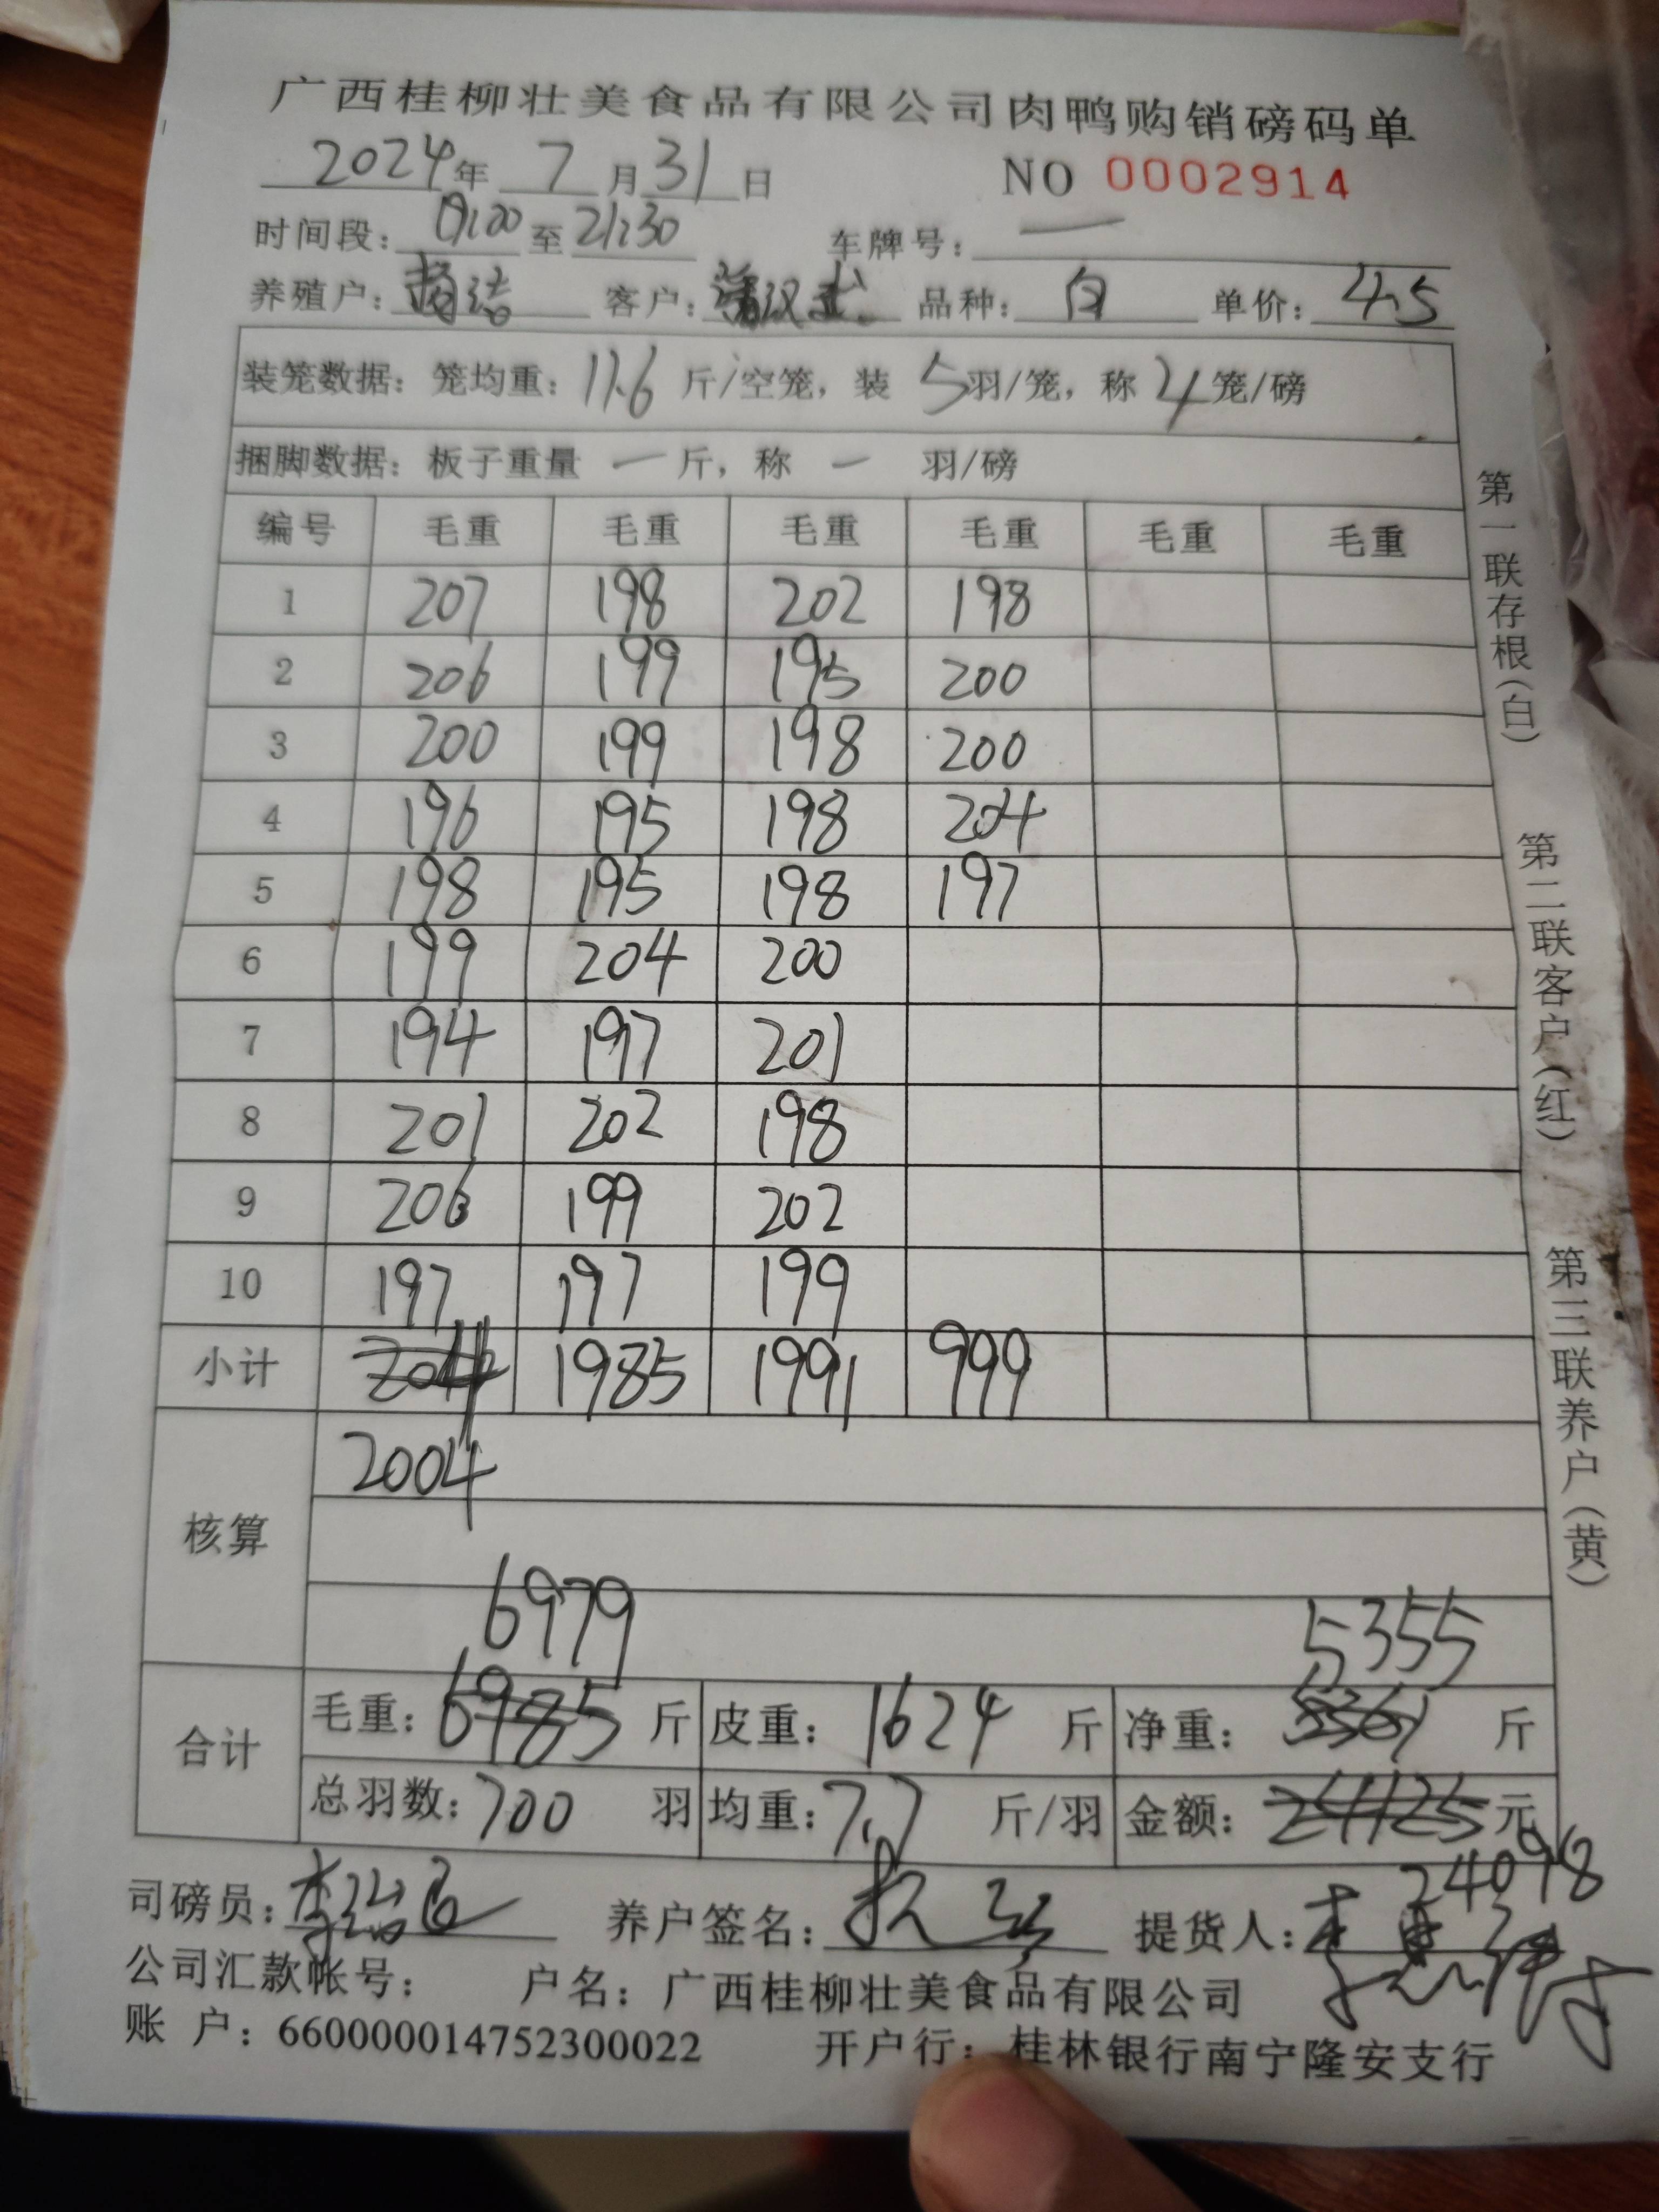 广西桂柳壮美食品有限公司肉鸭购销磅码单
2024年 7 月 31 日 NO 0002914
时间段: 19:00 至 21:30 车牌号: —
养殖户: 客户: 品种: 白 单价: 4.5
装笼数据: 笼均重: 11.6 斤/空笼, 装 5 羽/笼, 称 4 笼/磅
捆脚数据: 板子重量 — 斤, 称 — 羽/磅
编号 毛重 毛重 毛重 毛重 毛重 毛重
1 207 198 202 198
2 206 199 195 200
3 200 199 198 200
4 196 195 198 204
5 198 195 198 197
6 199 204 200
7 194 197 201
8 201 202 198
9 206 199 202
10 197 197 199
小计 1985 1991 999
2004
核算
6979 5355
合计 毛重: 6985 斤 皮重: 1624 斤 净重: 5361 斤
总羽数: 700 羽 均重: 7.7 斤/羽 金额: 24125 元
24098
司磅员: 养户签名: 提货人:
公司汇款帐号: 户名: 广西桂柳壮美食品有限公司
账 户: 660000014752300022 开户行: 桂林银行南宁隆安支行
第一联存根(白) 第二联客户(红) 第三联养户(黄)